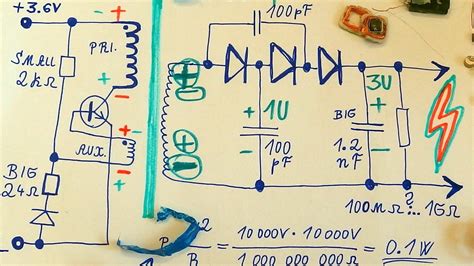 +3.6V
100pF
PRI.
SMALL
2kΩ
3V
1V
BIG
1.2
nF
100
pF
AUX.
BIG
24Ω
?
100MΩ...1GΩ
2
P
R
=
10 000V · 10 000V
1 000 000 000 Ω
=
0.1W